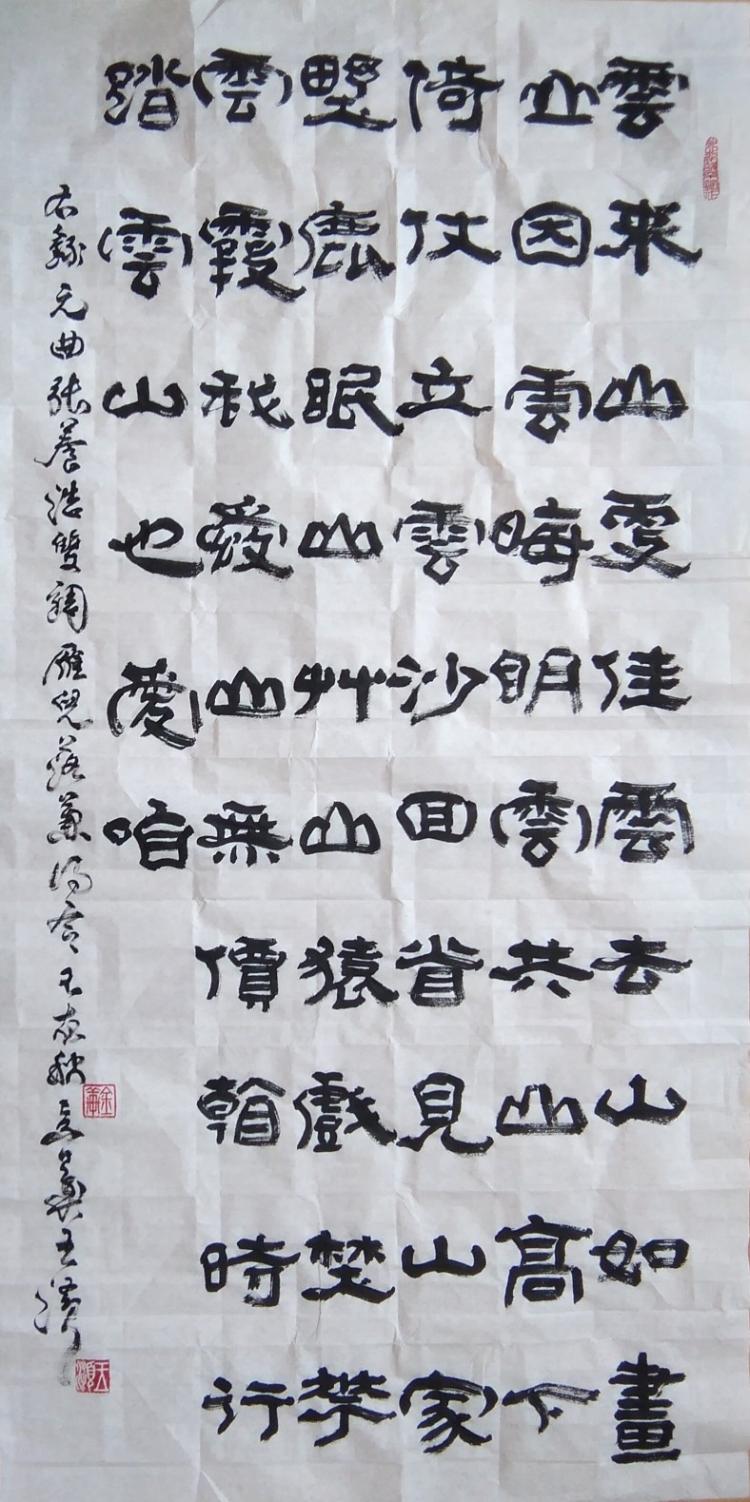 雲来山更佳雲去山如畫
山因雲晦明雲共山高下
倚仗立雲沙回首見山家
野鹿眠山艸山猿戲埜華
雲霞我愛山無價看時行
踏雲山也愛咱
右錄元曲張養浩雙調雁兒落兼得令秋王